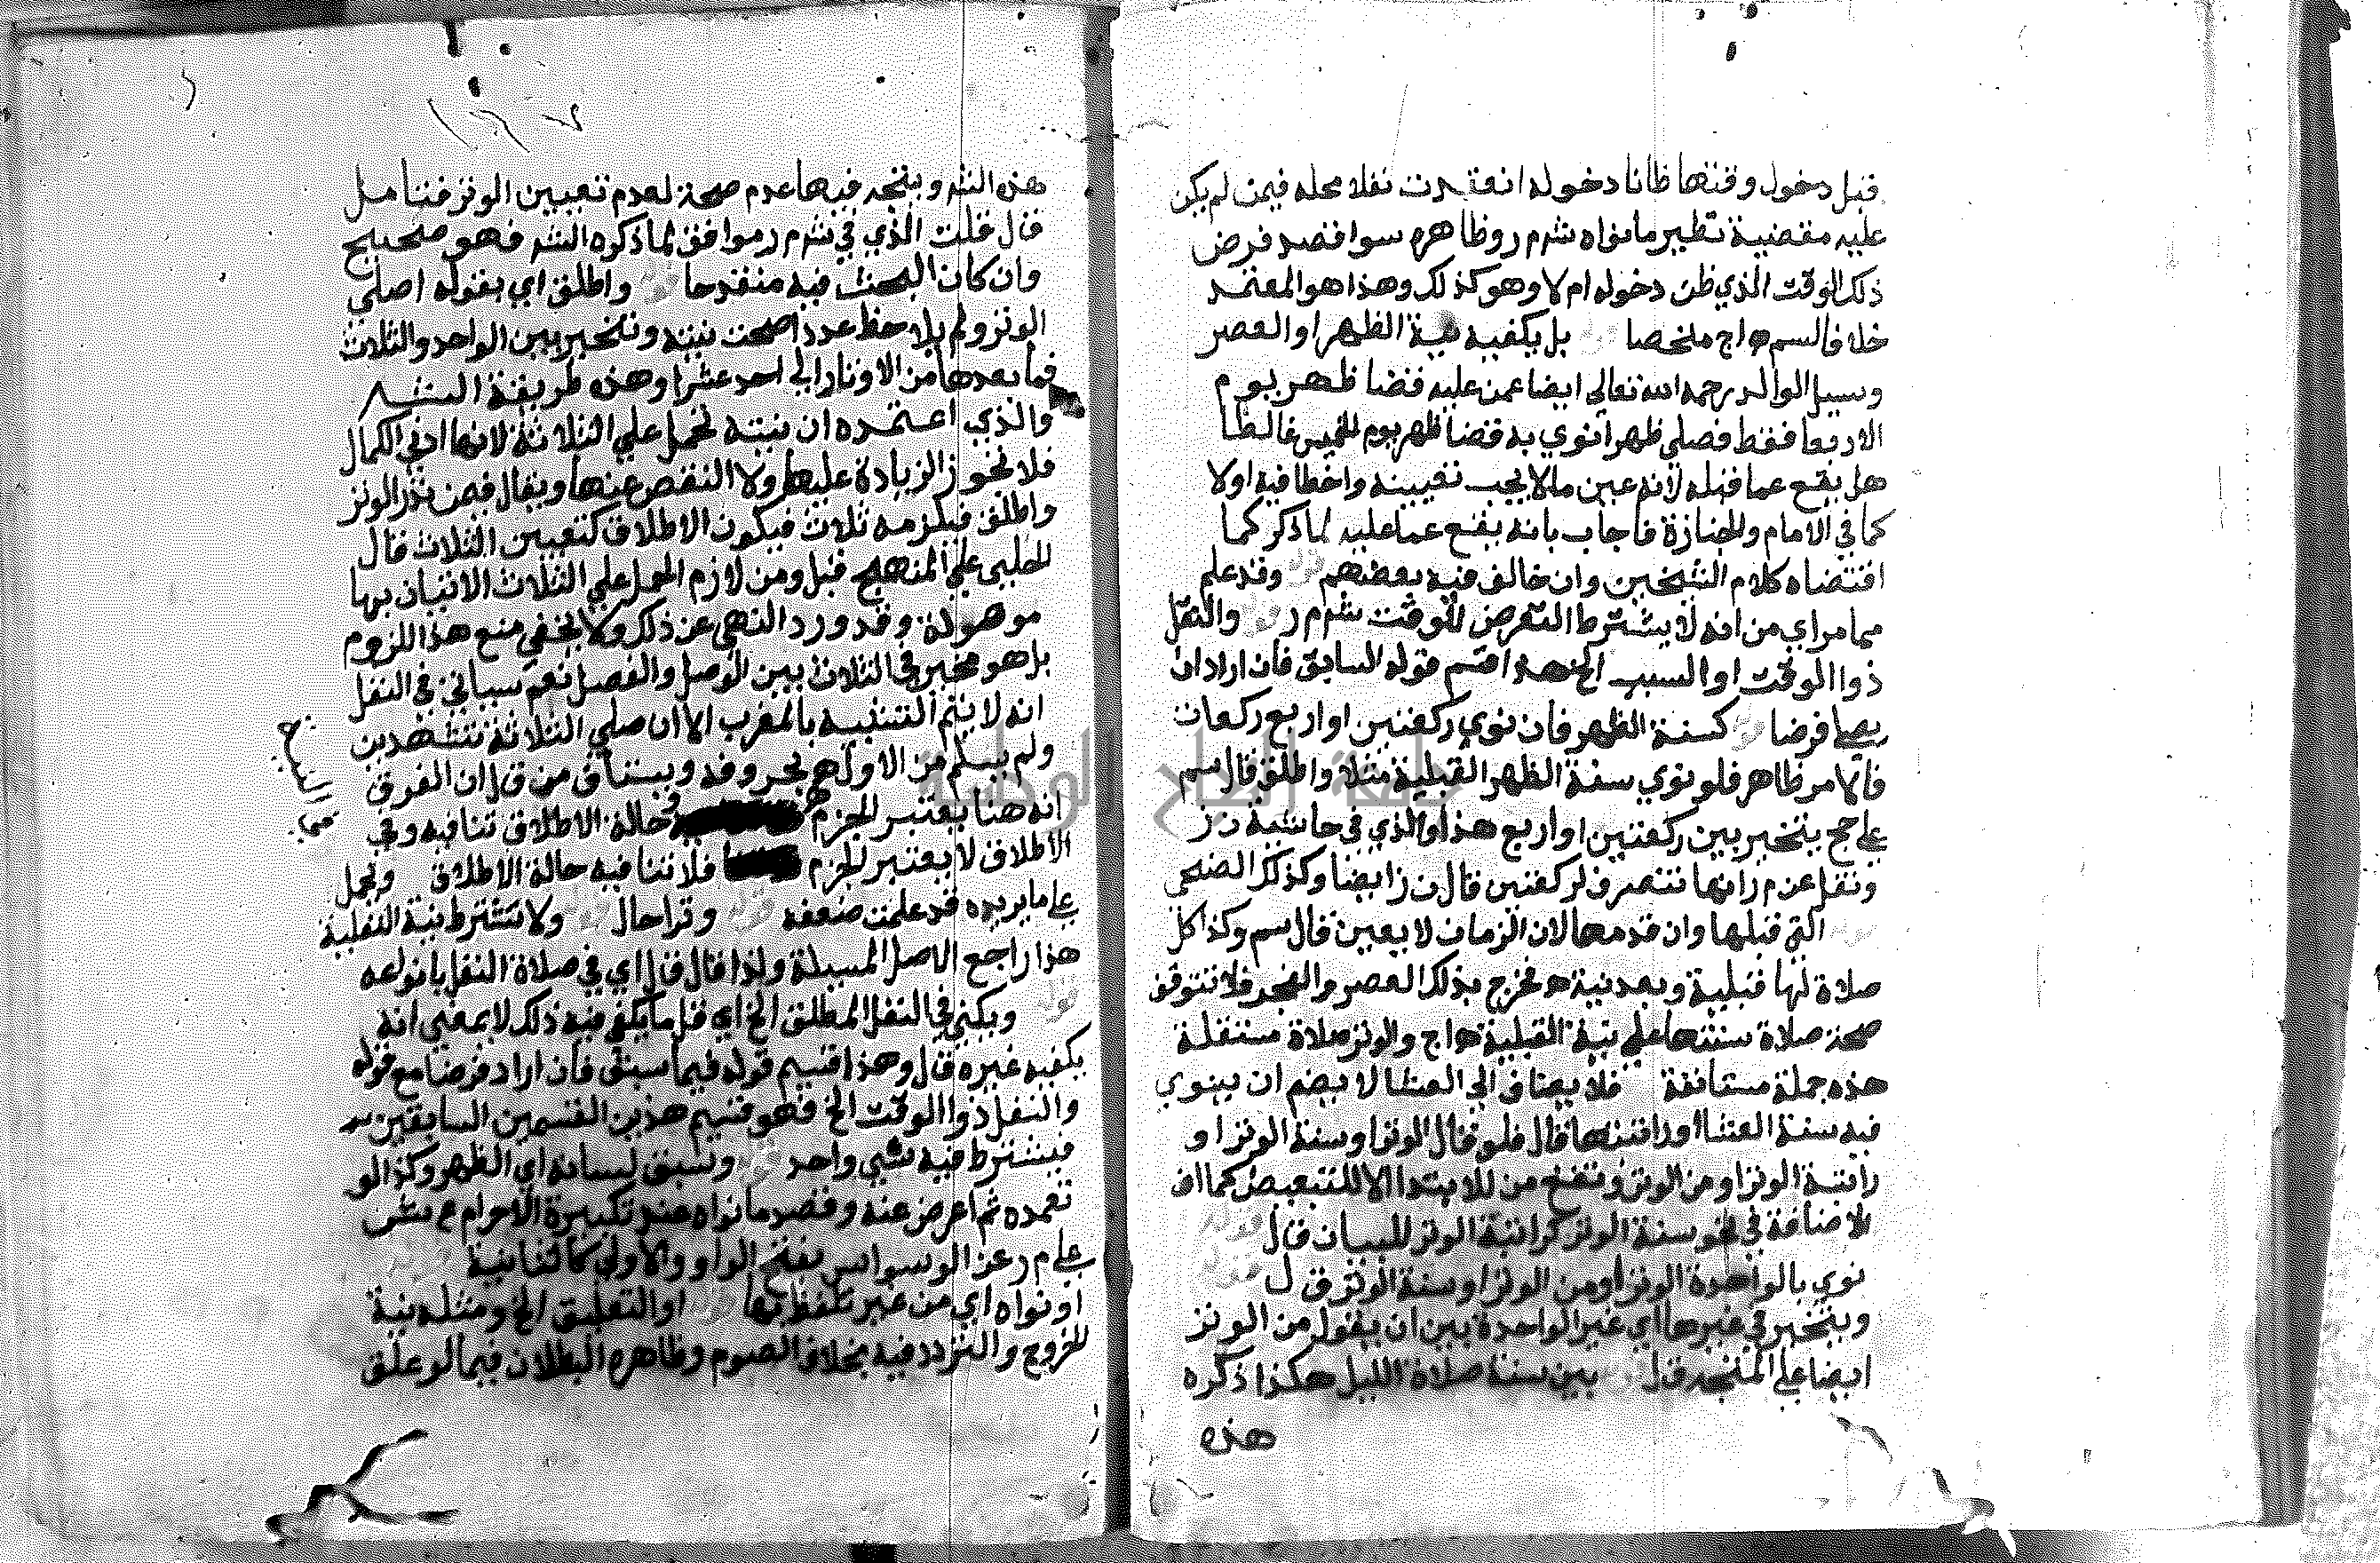 قبل دخول وقتها ظانا دخوله انعقدت نفلا محله فيمن لم يكن
عليه مقضية نظير مانواه شرم ر وظاهره سوا قصد فرض
ذلك الوقت الذي ظن دخوله ام لا وهو كذلك وهذا هو المعتمد
خلافا لسم ملخصا بل يكفيه نية الظهر او العصر
وسيل الوالد رحمه الله تعالي ايضا عمن عليه قضا ظهر يوم
الاربعا فقط فصلي ظهرا نوي به قضا ظهر يوم الخميس غالطا
هل يقع عما قبله لانه عين مالا يجب تعيينه واخطا فيه اولا
كما في الامام والجنازة فاجاب بانه يقع عما عليه لما ذكر كما
اقتضاه كلام الشيخين وان خالف فيه بعضهم وقد علم
مما مر اي من انه لا يشترط التعرض للوقت شرم ر والنفل
ذوا الوقت او السبب الخ هذا قسم قوله السابق فان اراد ان
يصلي فرضا كسنة الظهر فان نوي ركعتين او اربع ركعات
فالامر ظاهر فلو نوي سنة الظهر القبلية مثلا واطلق قال سم
علي حج يتخير بين ركعتين او اربع هذا والذي في حاشية ن ز
ونقل عن م ر انها تنصرف لركعتين قال ن ز ايضا وكذلك الضحي
التي قبلها وان قدمها لان الزمان لا يعين قال سم وكذا كل
صلاة لها قبلية وبعدية فخرج بذلك العصر والفجر فلا تتوقف
صحة صلاة سنتها علي نية القبلية والوتر صلاة مستقلة
هذه جملة مستانفة فلا يضاف الي العشا لا يضم ان ينوي
فيه سنة العشا او راتبتها قال فلو قال الوتر او سنة الوتر او
راتبة الوتر او من الوتر وتفتح من للابتدا لا للتبعيض كما ان
للاضافة في نحو سنة الوتر كراتبة الوتر للبيان قال
نوي بالواحدة الوتر او من الوتر او سنة الوتر ق ل
ويتخير في غيرها اي غير الواحدة بين ان يقول من الوتر
ايضا علي المتجه ق ل بين سنة صلاة الليل هكذا ذكره
هذه
هذه الش ويتجه فيها عدم صحة لعدم تعيين الوتر فتامل
قال قلت الذي في شرم ر موافق لما ذكره الش فهو صحيح
وان كان البحث فيه منقدحا واطلق اي بقوله اصلي
الوتر ولم يلاحظ عددا صحت نيته ويتخير بين الواحد والثلاث
فما بعدها من الاوتار الي احد عشر وهذه طريقة الش
والذي اعتمده ان نيته تحمل علي الثلاثة لانها ادني الكمال
فلا تجوز الزيادة عليها ولا النقص عنها ويقال فمن نذر الوتر
واطلق فيلزمه ثلاث فيكون الاطلاق كتعيين الثلاث قال
الحلبي علي المنهج قبل ومن لازم الحمل علي الثلاث الاتيان بها
موصولة وقد ورد النهي عن ذلك ولا يخفي منع هذا اللزوم
بل هو مخير في الثلاث بين الوصل والفصل نعم سياتي في النفل
انه لا يتم التشبيه بالمغرب الا ان صلي الثلاثة بتشهدين
ولم يسلم من الاول بحروفه ويستأق من ق ل ان الفرق
انه هنا يعتبر الجزم فحالة الاطلاق تنافيه وفي
الاطلاق لا يعتبر الجزم فلا تنافيه حالة الاطلاق ويحمل
علي ما يريده قد علمت ضعفه وتراحال ولا تشترط نية النفلية
هذا راجع لاصل المسيلة ولذا قال ق ل اي في صلاة النفل بانواعه
قوله ويكفي في النفل المطلق الخ اي قل ما يكفي فيه ذلك لا بمعني انه
يكفيه غيره ق ل وهذا قسيم قوله فيما سبق فان اراد فرضا مع قوله
والنفل ذوا الوقت الخ فهو قسيم هذين القسمين السابقين
فيشترط فيه شي واحد وسبق لسانه اي الظهر وكذا لو
تعمده ثم اعرض عنه وقصد ما نواه عند تكبيرة الاحرام ع ش
علي م ر عن الوسواس بفتح الواو والاولي كالثانية
او نواه اي من غير تلفظ بها او التعليق الخ ومثله نية
الخروج والتردد فيه بخلاف الصوم وظاهره البطلان فيما لو علق